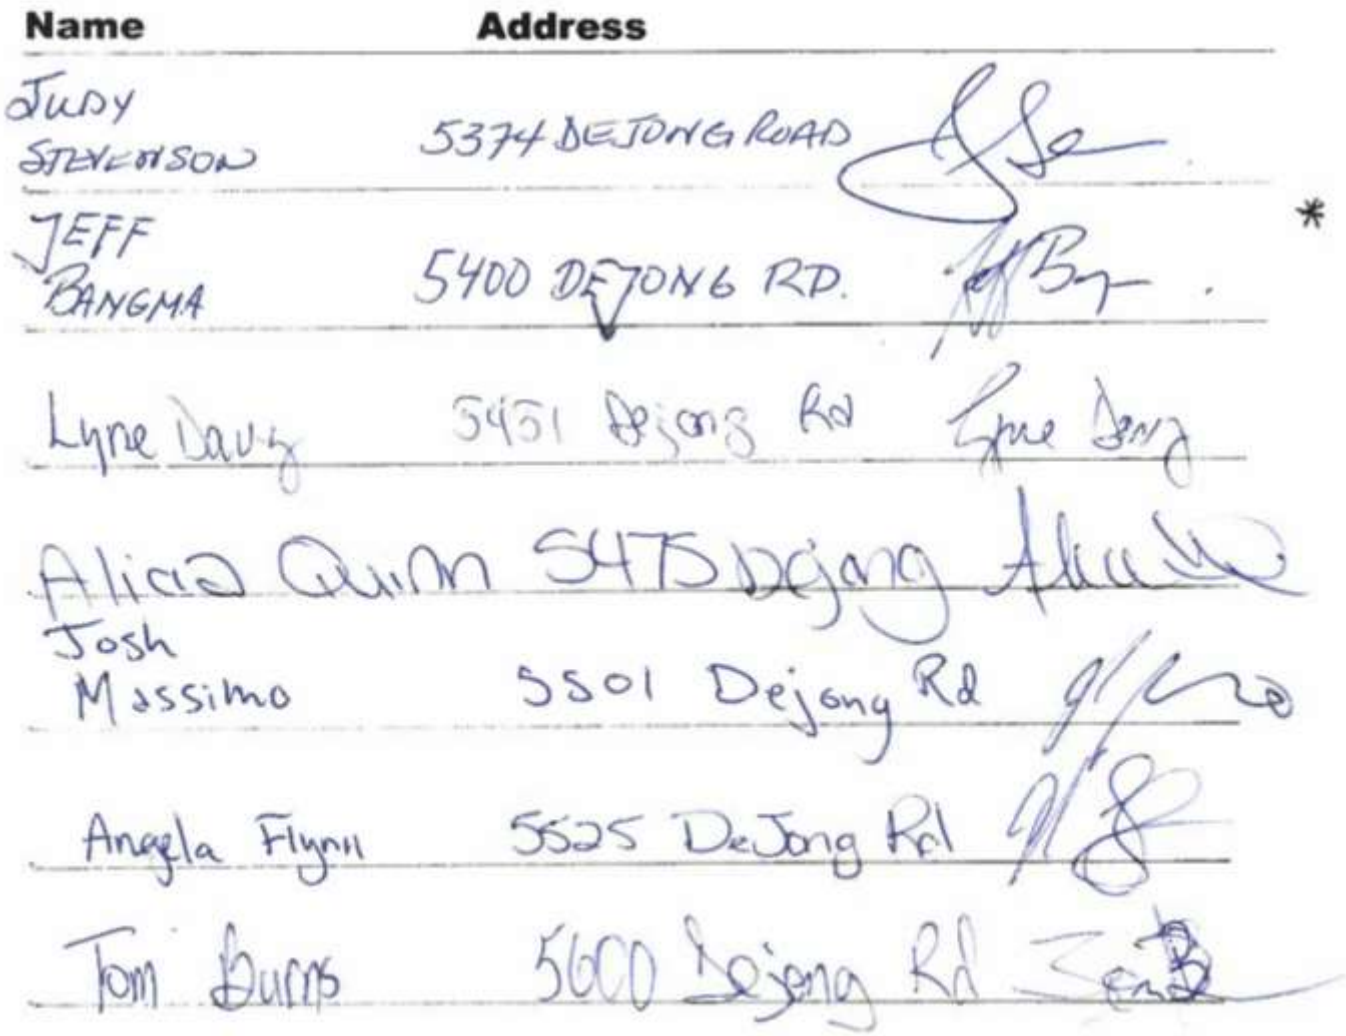 Name Address
JUDY
STEVENSON 5374 DEJONG ROAD
JEFF
BANGMA 5400 DEJONG RD.
*
Lyne Davy 5451 Dejong Rd Lyne Davy
Alicia Quinn 5475 Dejong
Josh
Massimo 5501 Dejong Rd
Angela Flynn 5525 DeJong Rd
Tom Burns 5600 Dejong Rd